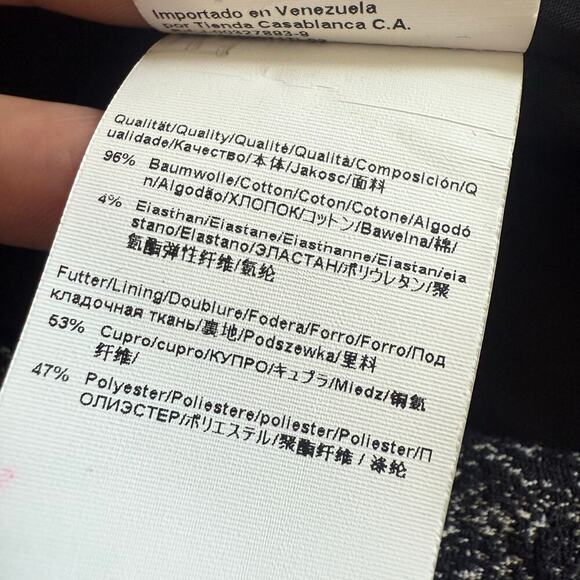 Importado en Venezuela
por Tienda Casablanca C.A.
00327893-9
Qualität/Quality/Qualité/Qualità/Composición/Q
ualidade/Качество/本体/Jakosc/面料
96% Baumwolle/Cotton/Coton/Cotone/Algodó
n/Algodão/ХЛОПОК/コットン/Bawelna/棉/
4% Elasthan/Elastane/Elasthanne/Elastan/ela
stano/Elastano/ЭЛАСТАН/ポリウレタン/聚
氨酯弹性纤维/氨纶
Futter/Lining/Doublure/Fodera/Forro/Forro/Под
кладочная ткань/裏地/Podszewka/里料
53% Cupro/cupro/КУПРО/キュプラ/Miedz/铜氨
纤维/
47% Polyester/Poliestere/poliester/Poliester/П
ОЛИЭСТЕР/ポリエステル/聚酯纤维 / 涤纶